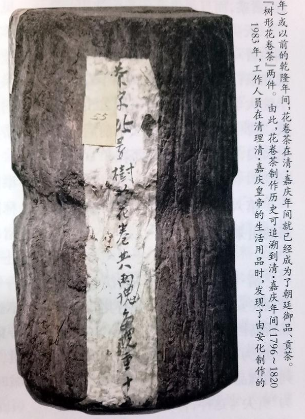 1983年,工作人员在清理清·嘉庆皇帝的生活用品时,发现了由安化制作的
『树形花卷茶』两件。由此,花卷茶制作历史可追溯到清·嘉庆年间(1796~1820
年)或以前的乾隆年间,花卷茶在清·嘉庆年间就已经成为了朝廷御品、贡茶。
樹 花卷共兩塊 重十